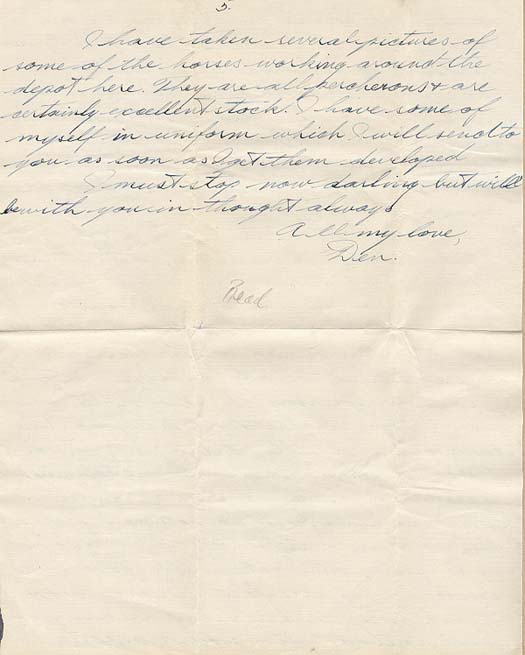 5.
I have taken several pictures of
some of the horses working around the
depot here. They are all percherons & are
certainly excellent stock. I have some of
myself in uniform which I will send to
you as soon as I get them developed
I must stop now darling but will
be with you in thought always
All my love,
Den.
Read